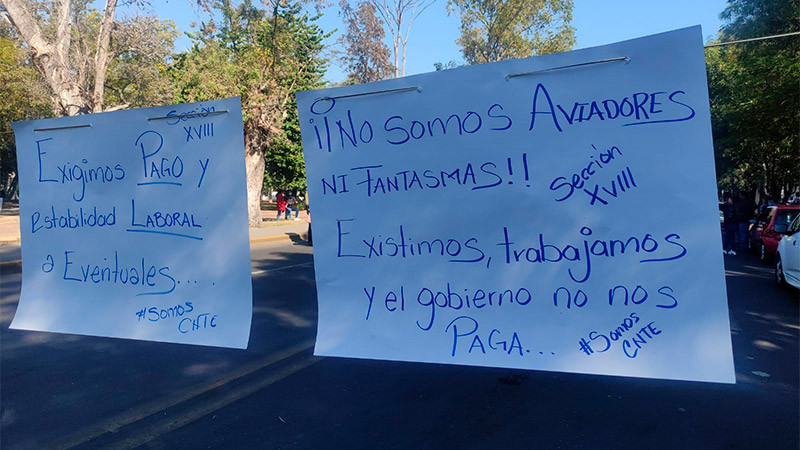 Sección
XVIII
Exigimos PAGO y
estabilidad LABORAL
a Eventuales....
#Somos
CNTE
¡¡No somos AVIADORES
NI FANTASMAS!!
Sección
XVIII
Existimos, trabajamos
y el gobierno no nos
PAGA...
#Somos
CNTE